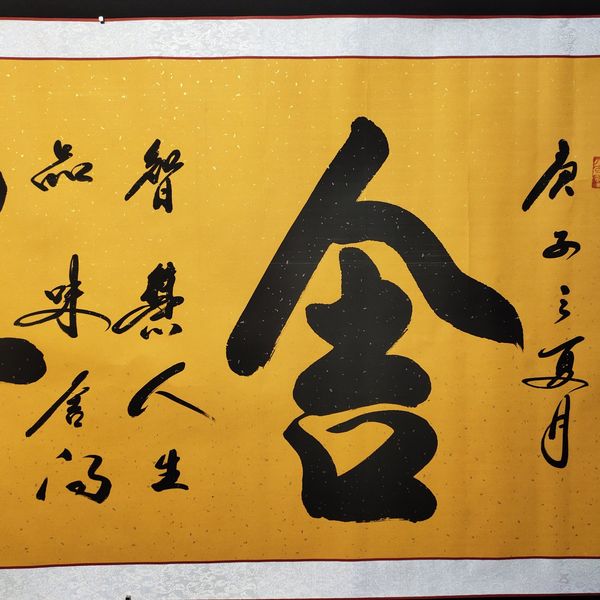 庚子之夏月
舍
智慧人生
品味舍得